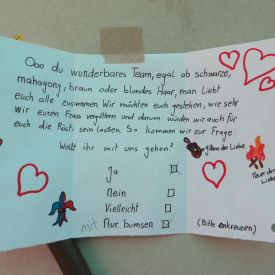 Ooo du wunderbares Team, egal ob schwarze,
mahagony, braun oder blondes Haar, man liebt
euch alle zusammen. Wir möchten euch gestehen, wie sehr
wir euren Frass vergöttern und darum würden wir auch für
euch die Rösti sein lassen. So kommen wir zur Frage:
Wollt ihr mit uns gehen?
Ja
Nein
Vielleicht
mit Pur bumsen
(Bitte ankreuzen)
der Liebe
Feuer der
Liebe